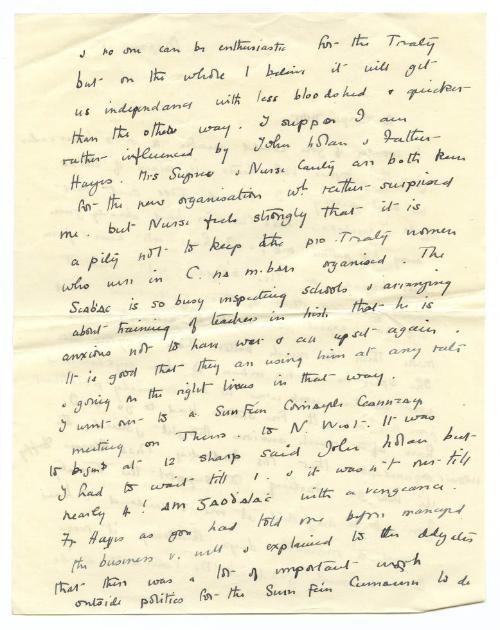 & no one can be enthusiastic for the Treaty
but on the whole I believe it will get
us independance with less bloodshed & quicker
than the other way. I suppose I am
rather influenced by John Nolan & Father
Hayes. Mrs & Nurse are both keen
for the new organisation wh. rather surprised
me. but Nurse feels strongly that it is
a pity not to keep the pro-Treaty women
who were in C. na mban organised. The
is so busy inspecting schools & arranging
about training of teachers in Irish that he is
anxious not to have war & all upset again.
It is good that they are using him at any rate
& going on the right lines in that way.
I went over to a Sinn Féin Comairle Ceanntair
meeting on Thurs. to N. West. It was
to begin at 12 sharp said John Nolan but
I had to wait till 1. & it was n't over till
nearly 4! Am with a vengeance.
Fr Hayes as you had told me before managed
the business v. well & explained to the delegates
that there was a lot of important work
outside politics for the Sinn Féin Cumainn to do